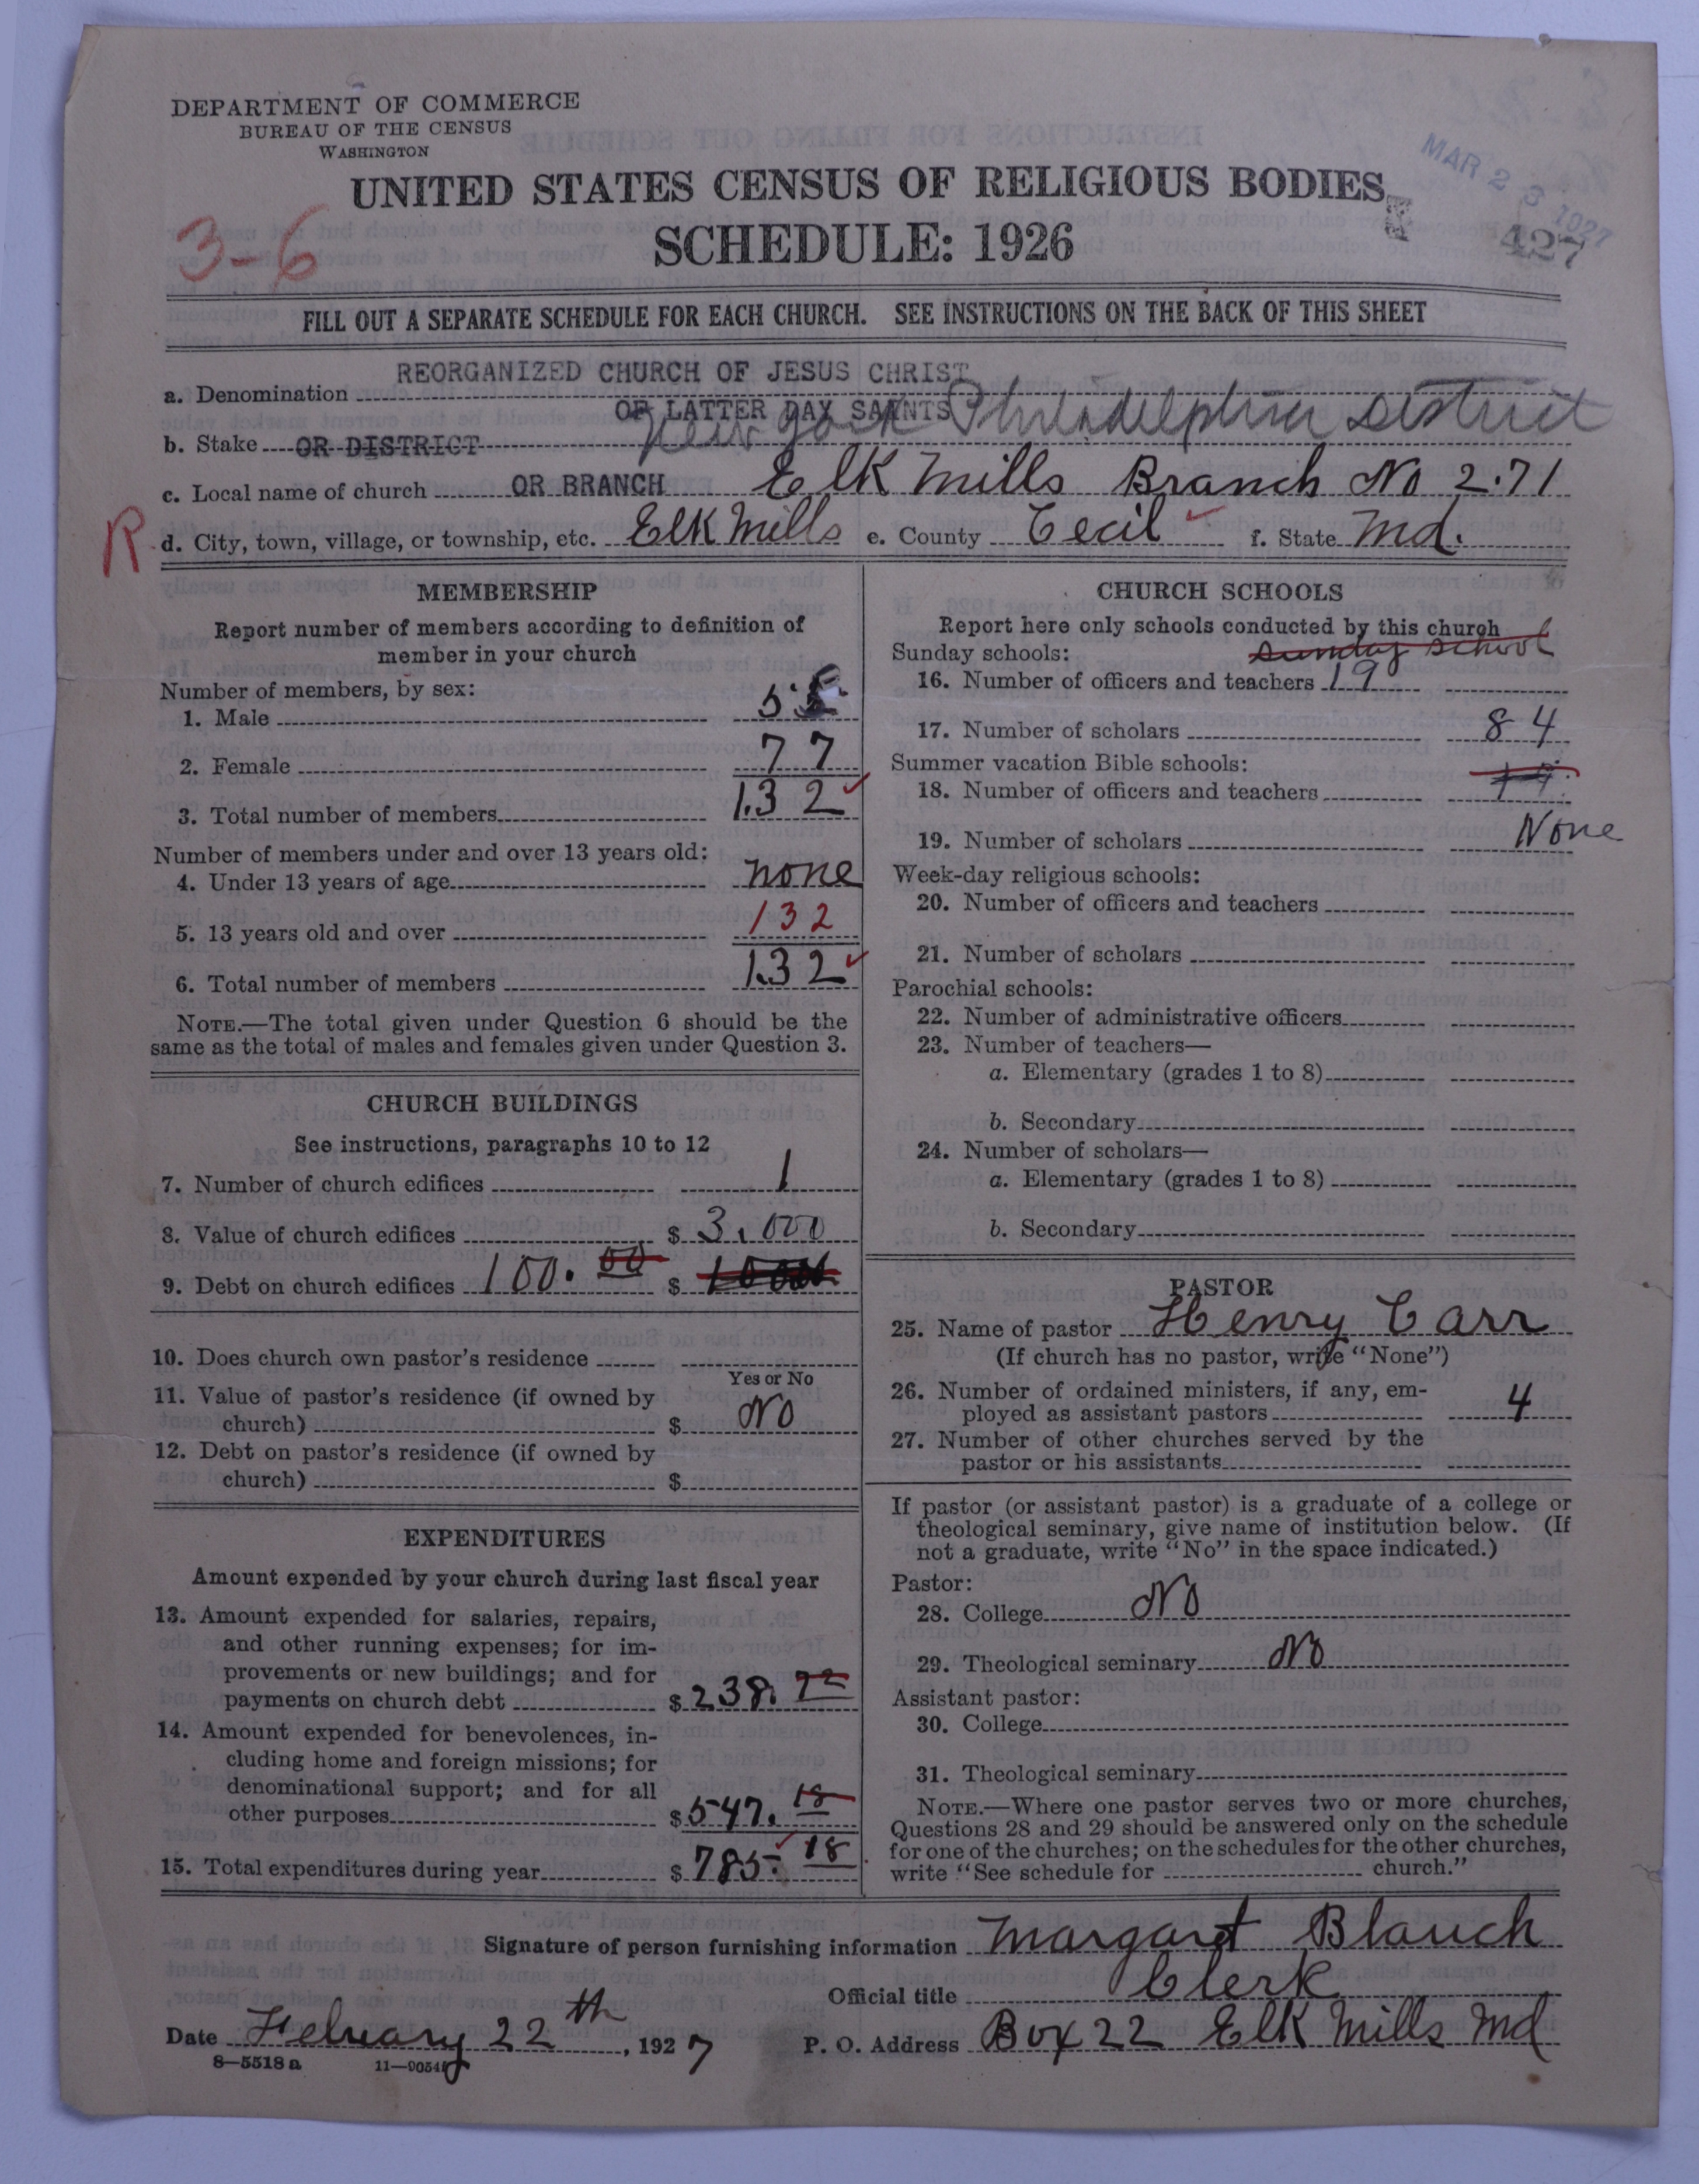 DEPARTMENT OF COMMERCE
BUREAU OF THE CENSUS
WASHINGTON
UNITED STATES CENSUS OF RELIGIOUS BODIES
SCHEDULE: 1926
3-6
MAR 23 1927
427
FILL OUT A SEPARATE SCHEDULE FOR EACH CHURCH. SEE INSTRUCTIONS ON THE BACK OF THIS SHEET
REORGANIZED CHURCH OF JESUS CHRIST
a. Denomination
OF LATTER DAY SAINTS
b. Stake OR DISTRICT New York Philadelphia District
c. Local name of church OR BRANCH Elk Mills Branch No 2.71
R d. City, town, village, or township, etc. Elk Mills e. County Cecil f. State Md.
MEMBERSHIP
Report number of members according to definition of
member in your church
Number of members, by sex:
1. Male 55
2. Female 77
3. Total number of members 132
Number of members under and over 13 years old:
4. Under 13 years of age none
5. 13 years old and over 132
6. Total number of members 132
NOTE.—The total given under Question 6 should be the
same as the total of males and females given under Question 3.
CHURCH BUILDINGS
See instructions, paragraphs 10 to 12
7. Number of church edifices 1
8. Value of church edifices $ 3,000
9. Debt on church edifices 100.00 $
10. Does church own pastor's residence
Yes or No
11. Value of pastor's residence (if owned by
church) $ No
12. Debt on pastor's residence (if owned by
church) $
EXPENDITURES
Amount expended by your church during last fiscal year
13. Amount expended for salaries, repairs,
and other running expenses; for im-
provements or new buildings; and for
payments on church debt $ 238.
14. Amount expended for benevolences, in-
cluding home and foreign missions; for
denominational support; and for all
other purposes $ 547. 18
15. Total expenditures during year $ 785. 18
CHURCH SCHOOLS
Report here only schools conducted by this church
Sunday schools: Sunday School
16. Number of officers and teachers 19
17. Number of scholars 84
Summer vacation Bible schools:
18. Number of officers and teachers
19. Number of scholars None
Week-day religious schools:
20. Number of officers and teachers
21. Number of scholars
Parochial schools:
22. Number of administrative officers
23. Number of teachers—
a. Elementary (grades 1 to 8)
b. Secondary
24. Number of scholars—
a. Elementary (grades 1 to 8)
b. Secondary
PASTOR
25. Name of pastor Henry Carr
(If church has no pastor, write "None")
26. Number of ordained ministers, if any, em-
ployed as assistant pastors 4
27. Number of other churches served by the
pastor or his assistants
If pastor (or assistant pastor) is a graduate of a college or
theological seminary, give name of institution below. (If
not a graduate, write "No" in the space indicated.)
Pastor:
28. College No
29. Theological seminary No
Assistant pastor:
30. College
31. Theological seminary
NOTE.—Where one pastor serves two or more churches,
Questions 28 and 29 should be answered only on the schedule
for one of the churches; on the schedules for the other churches,
write "See schedule for church."
Signature of person furnishing information Margaret Blauch
Official title Clerk
Date February 22th, 1927 P. O. Address Box 22 Elk Mills Md
8—5518 a 11—9054